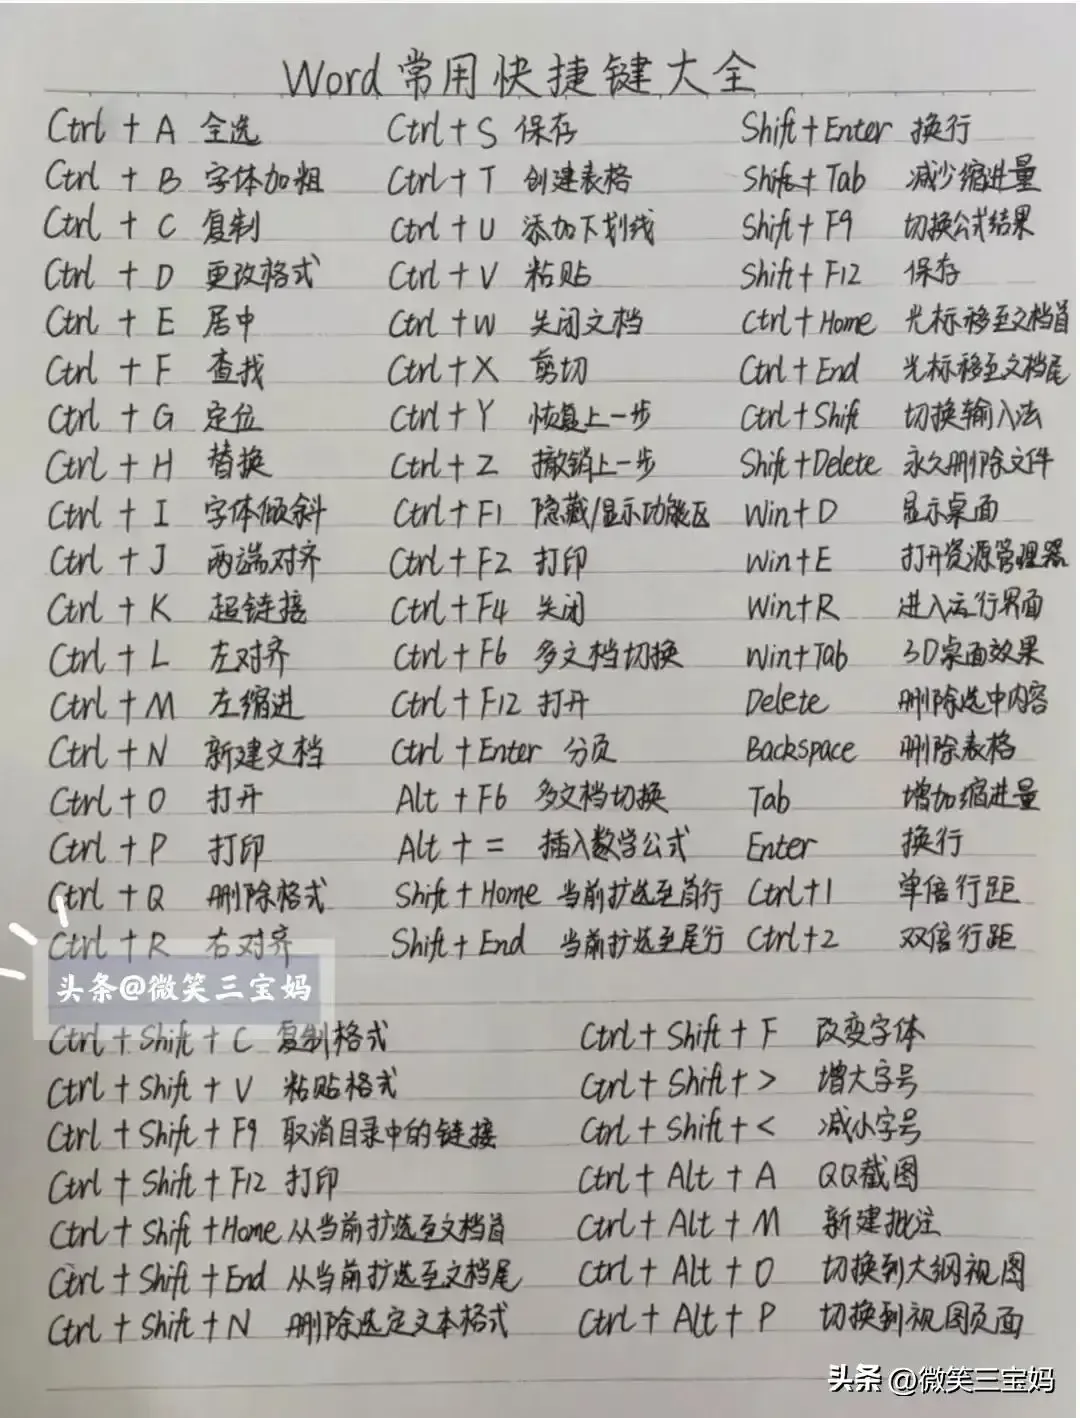 Word常用快捷键大全
Ctrl + A 全选 Ctrl + S 保存 Shift + Enter 换行
Ctrl + B 字体加粗 Ctrl + T 创建表格 Shift + Tab 减少缩进量
Ctrl + C 复制 Ctrl + U 添加下划线 Shift + F9 切换公式结果
Ctrl + D 更改格式 Ctrl + V 粘贴 Shift + F12 保存
Ctrl + E 居中 Ctrl + W 关闭文档 Ctrl + Home 光标移至文档首
Ctrl + F 查找 Ctrl + X 剪切 Ctrl + End 光标移至文档尾
Ctrl + G 定位 Ctrl + Y 恢复上一步 Ctrl + Shift 切换输入法
Ctrl + H 替换 Ctrl + Z 撤销上一步 Shift + Delete 永久删除文件
Ctrl + I 字体倾斜 Ctrl + F1 隐藏/显示功能区 Win + D 显示桌面
Ctrl + J 两端对齐 Ctrl + F2 打印 Win + E 打开资源管理器
Ctrl + K 超链接 Ctrl + F4 关闭 Win + R 进入运行界面
Ctrl + L 左对齐 Ctrl + F6 多文档切换 Win + Tab 3D桌面效果
Ctrl + M 左缩进 Ctrl + F12 打开 Delete 删除选中内容
Ctrl + N 新建文档 Ctrl + Enter 分页 Backspace 删除表格
Ctrl + O 打开 Alt + F6 多文档切换 Tab 增加缩进量
Ctrl + P 打印 Alt + = 插入数学公式 Enter 换行
Ctrl + Q 删除格式 Shift + Home 当前扩选至首行 Ctrl + 1 单倍行距
Ctrl + R 右对齐 Shift + End 当前扩选至尾行 Ctrl + 2 双倍行距
头条@微笑三宝妈
Ctrl + Shift + C 复制格式 Ctrl + Shift + F 改变字体
Ctrl + Shift + V 粘贴格式 Ctrl + Shift + > 增大字号
Ctrl + Shift + F9 取消目录中的链接 Ctrl + Shift + < 减小字号
Ctrl + Shift + F12 打印 Ctrl + Alt + A QQ截图
Ctrl + Shift + Home 从当前扩选至文档首 Ctrl + Alt + M 新建批注
Ctrl + Shift + End 从当前扩选至文档尾 Ctrl + Alt + O 切换到大纲视图
Ctrl + Shift + N 删除选定文本格式 Ctrl + Alt + P 切换到视图页面
头条 @微笑三宝妈